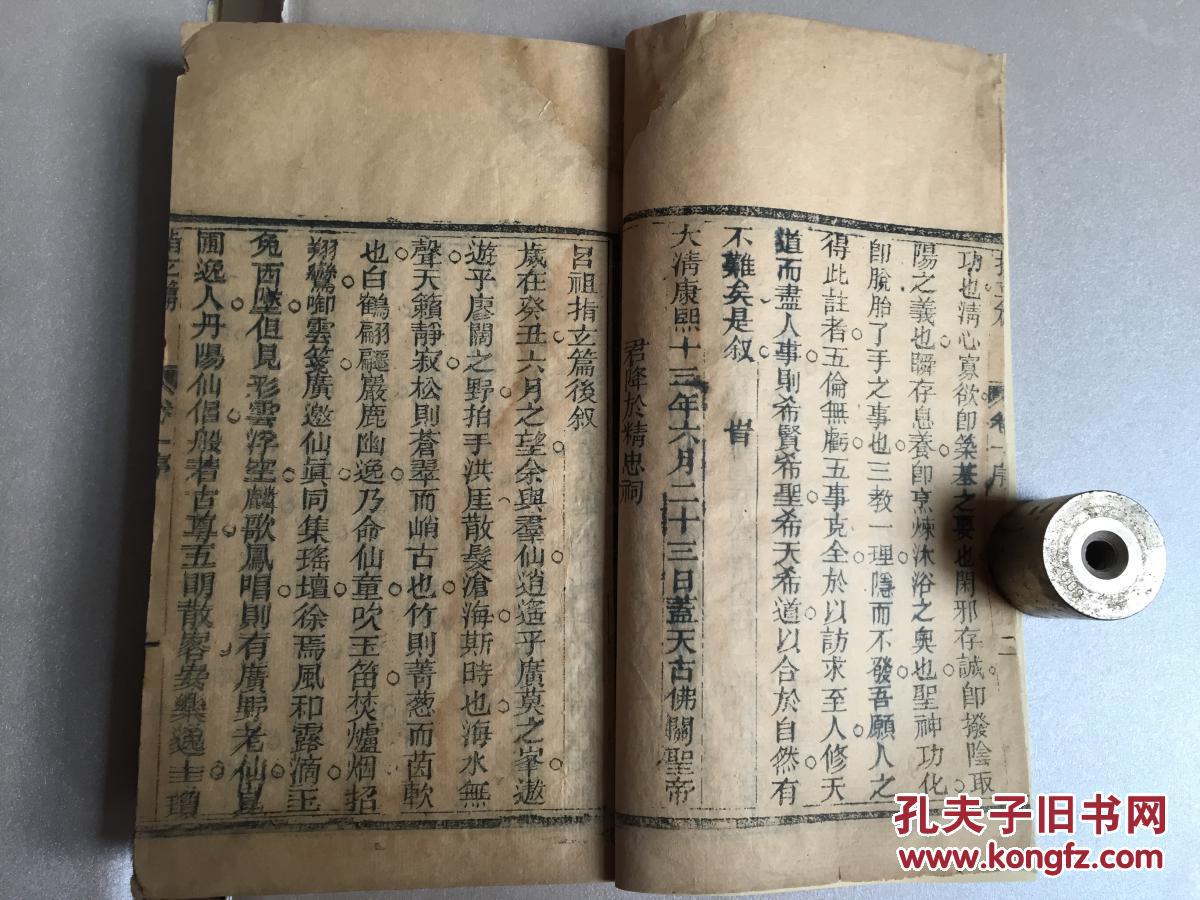 功也清心寡欲卽築基之要也閑邪存誠卽撥陰取
陽之義也瞬存息養卽烹煉沐浴之奧也聖神功化
卽脫胎了手之事也三教一理隱而不發吾願人之
得此註者五倫無虧五事克全於以訪求至人修天
道而盡人事則希賢希聖希天希道以合於自然有
不難矣是叙 旹
大淸康熙十三年六月二十三日蓋天古佛關聖帝
君降於精忠祠
呂祖指玄篇後叙
歲在癸丑六月之望余與羣仙逍遙乎廣莫之峯遨
遊乎廖闊之野拍手洪厓散髮滄海斯時也海水無
聲天籟靜寂松則蒼翠而峭古也竹則菁葱而茵軟
也白鶴翩躚巖鹿幽逸乃命仙童吹玉笛焚爐烟招
翔鸞啣雲箋廣邀仙眞同集瑤壇徐焉風和露滴玉
兔西墜但見彩雲浮空麟歌鳳唱則有廣野老仙
圃逸人丹陽仙侣般若古尊五明散客安樂逸士瓊
卷一序
孔夫子旧书网
www.kongfz.com